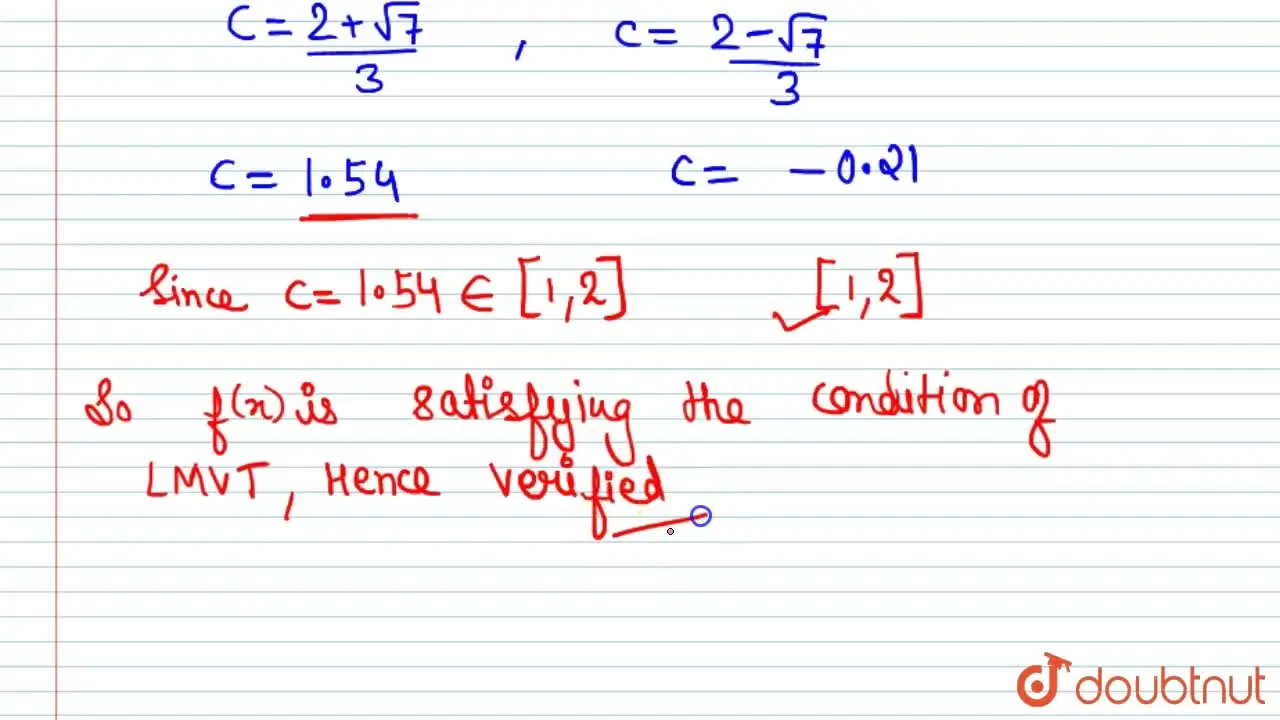 C = 2+√7/3 , C = 2-√7/3
C = 1.54 C = -0.21
Since C = 1.54 ∈ [1,2] [1,2]
So f(x) is satisfying the condition of
LMVT, Hence verified
doubtnut